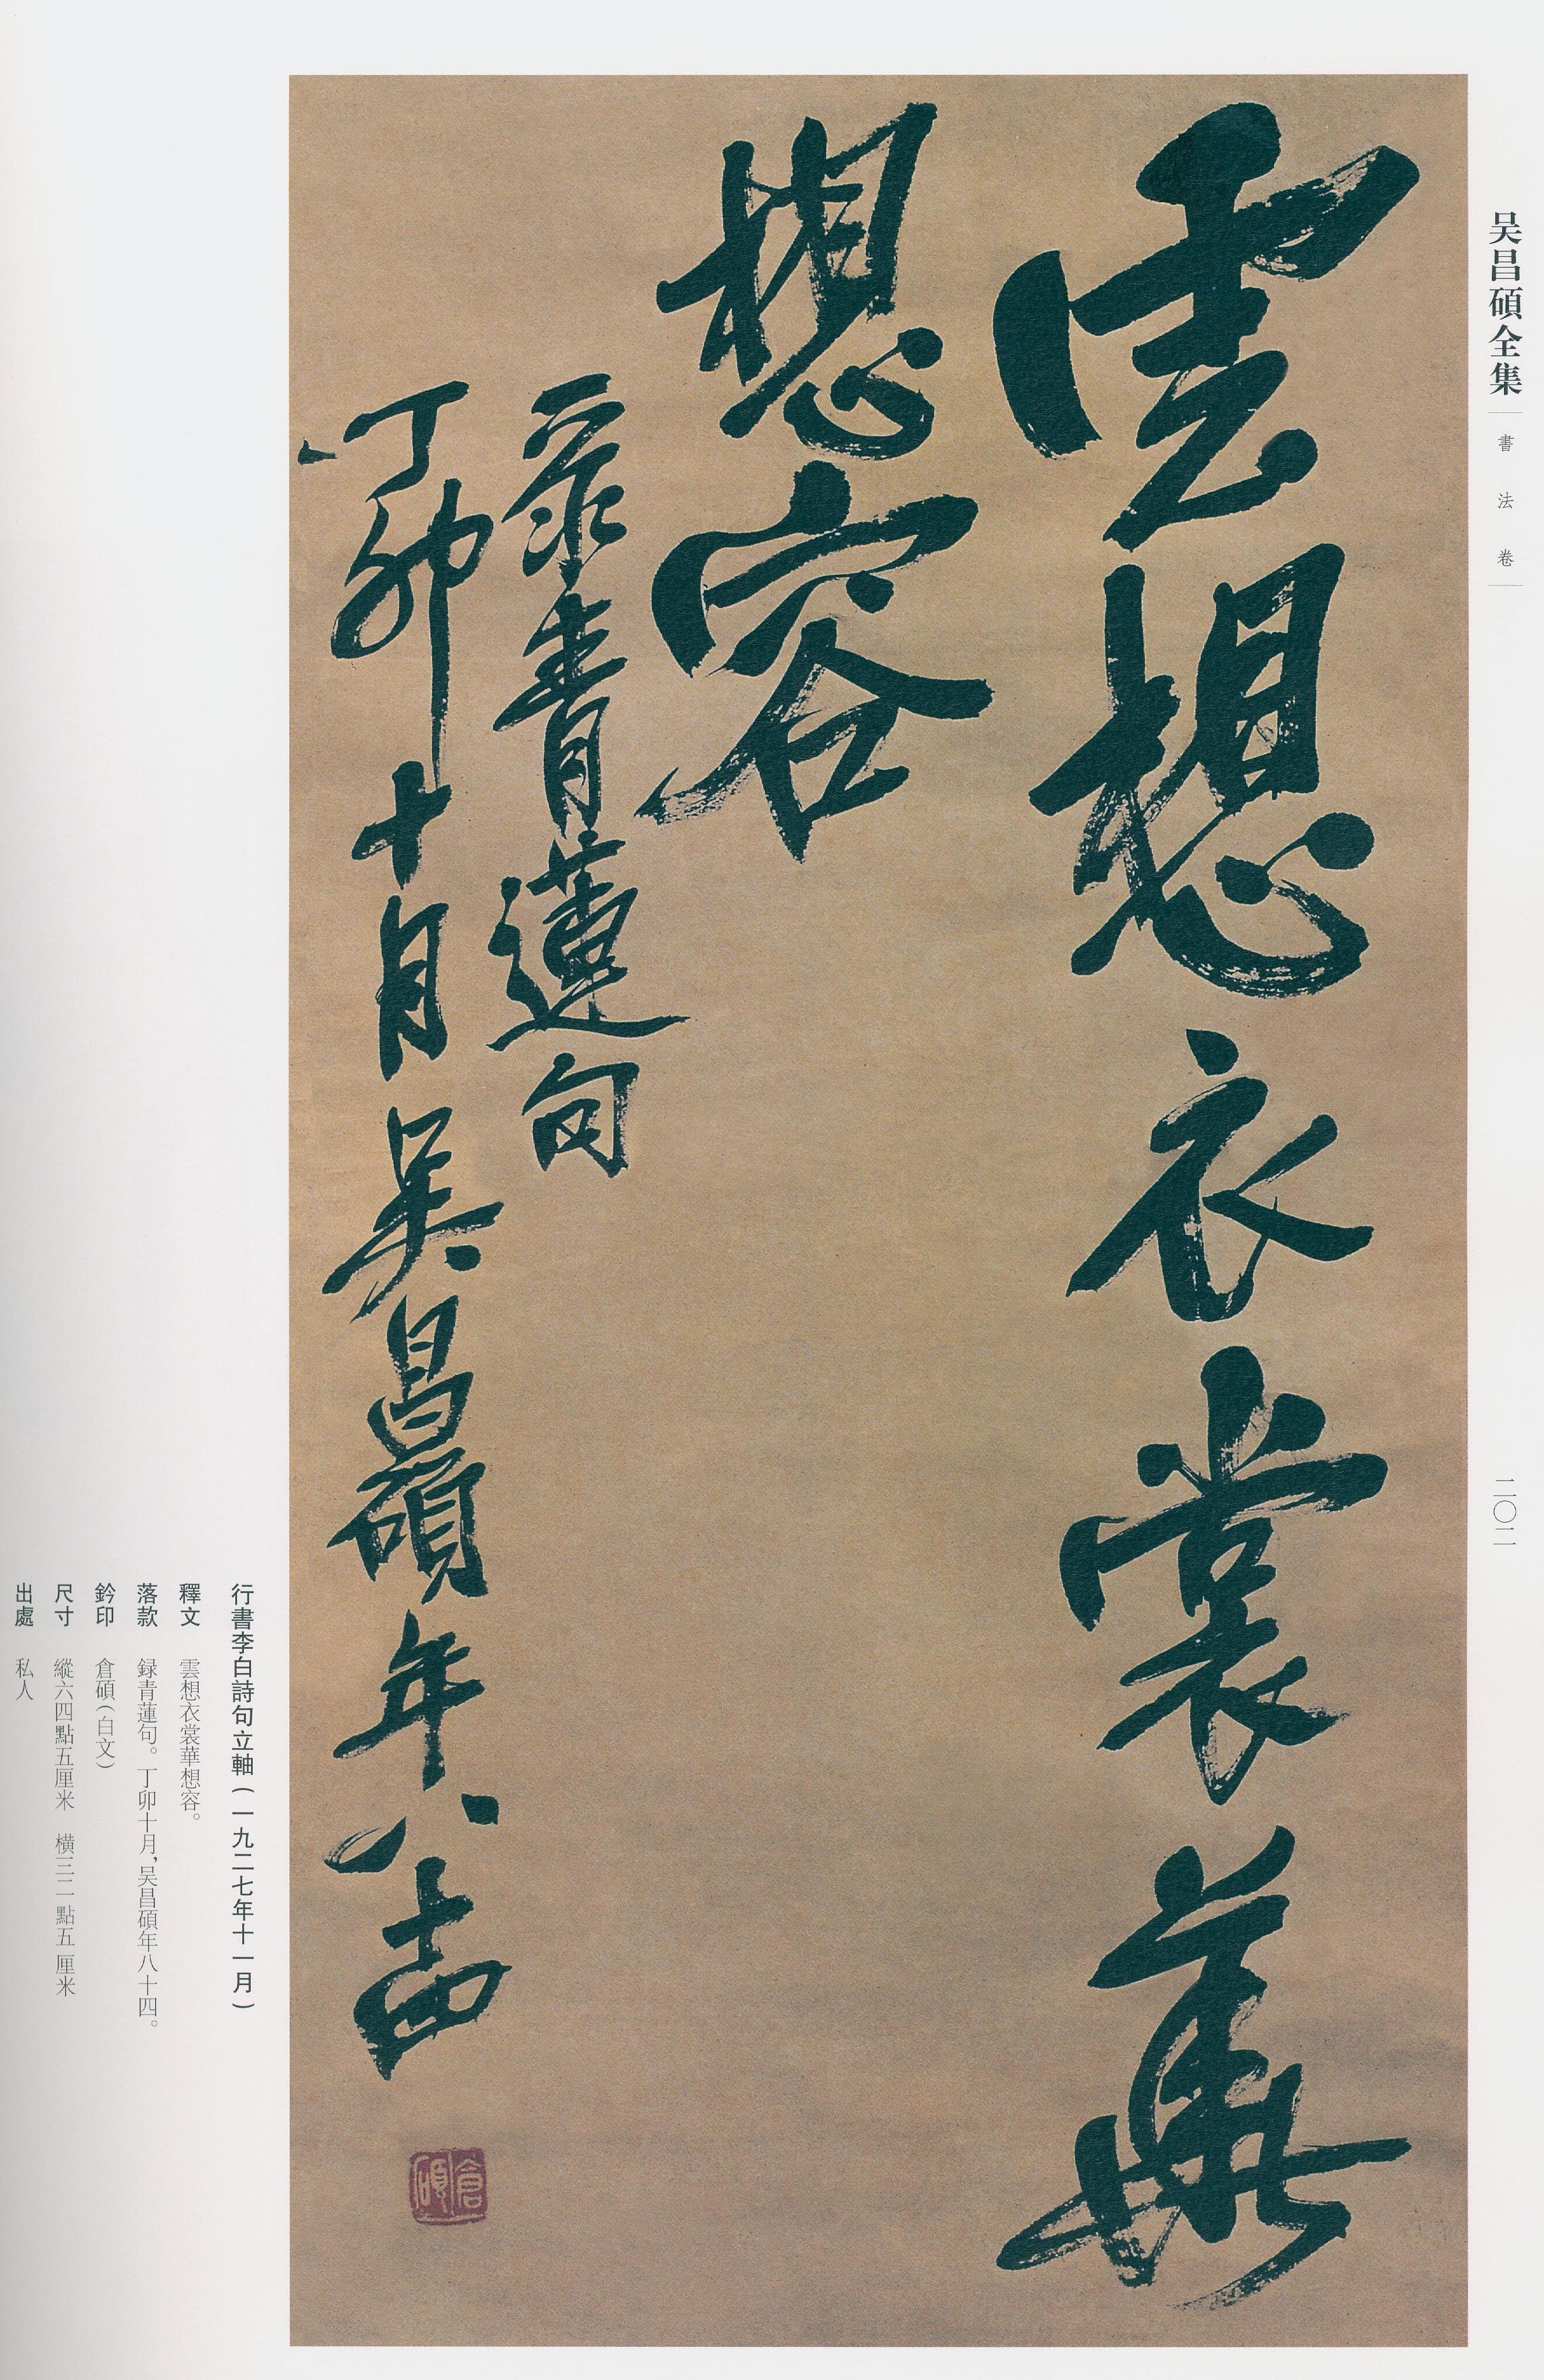 吴昌碩全集
書法卷
二〇二
雲想衣裳華
想容
录青蓮句
丁卯十月吴昌碩年八十四
倉碩
行書李白詩句立軸(一九二七年十一月)
釋文 雲想衣裳華想容。
落款 録青蓮句。丁卯十月,吴昌碩年八十四。
鈐印 倉碩(白文)
尺寸 縱六四點五厘米 橫三二點五厘米
出處 私人